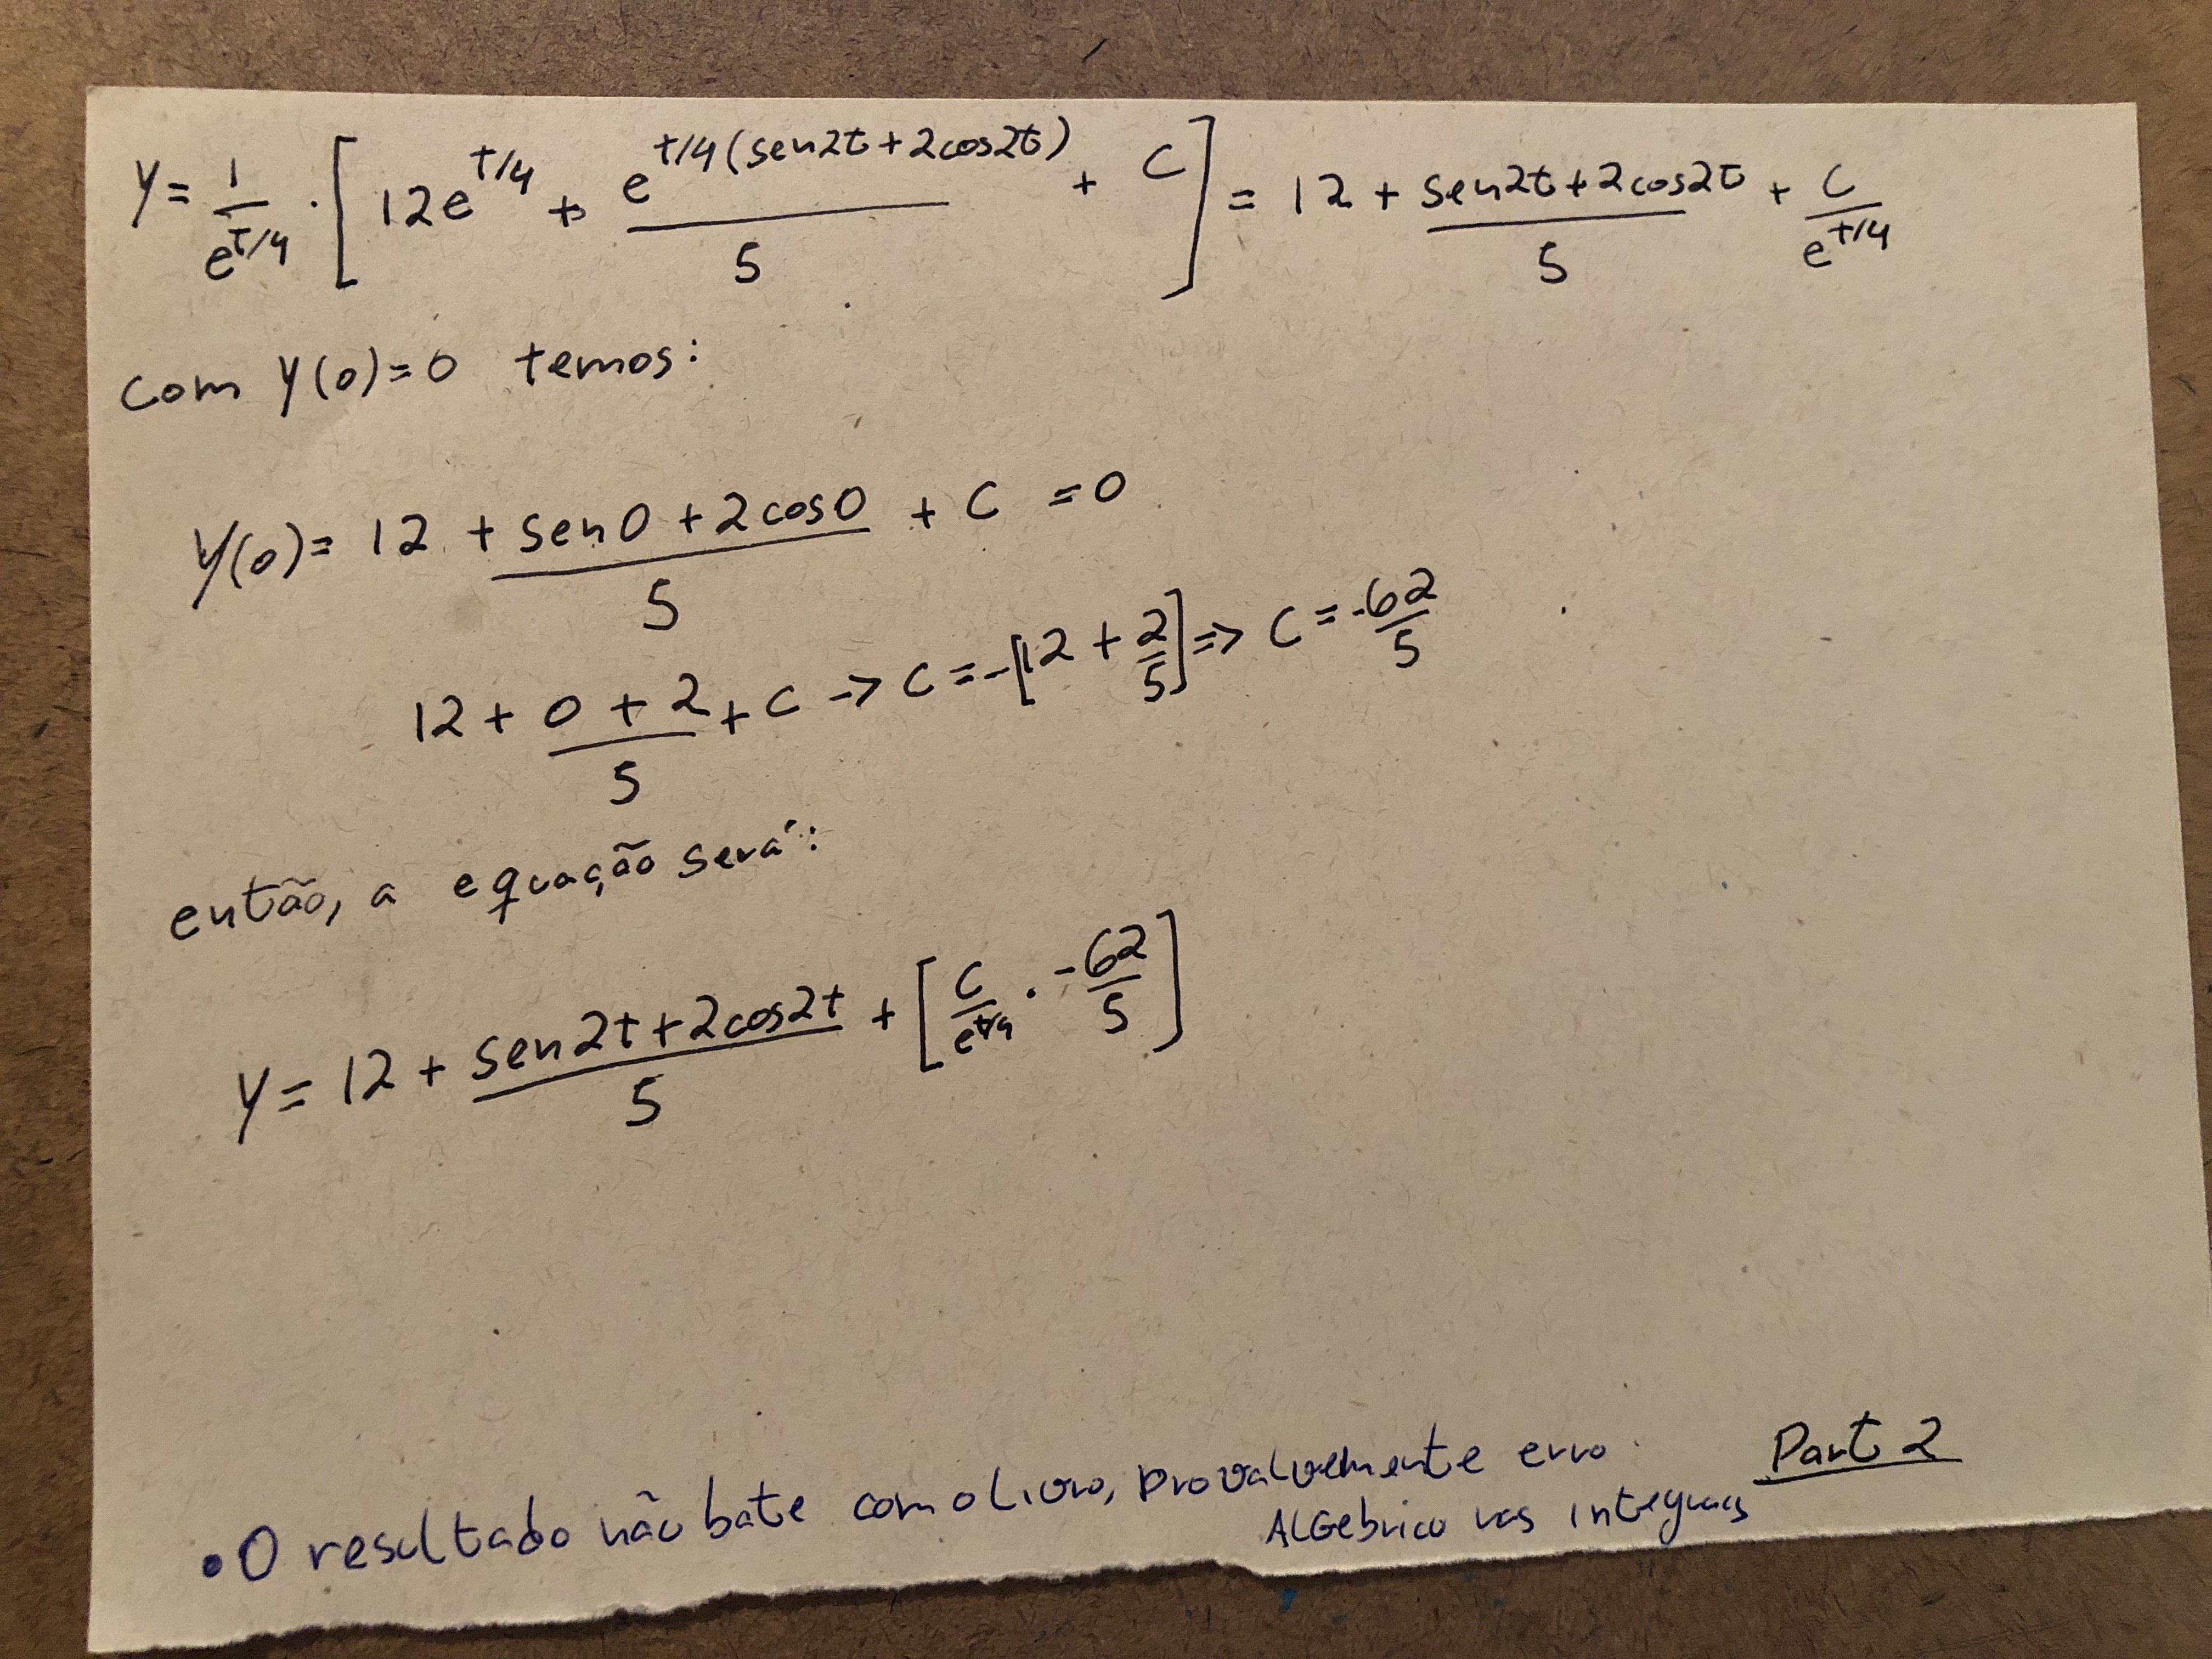 Y = 1/e^(t/4) · [12e^(t/4) + e^(t/4(sen2t+2cos2t))/5 + C] = 12 + (sen2t+2cos2t)/5 + C/e^(t/4)
com Y(0)=0 temos:
Y(0) = 12 + (sen0 + 2cos0)/5 + C = 0
12 + (0 + 2)/5 + C → C = -[12 + 2/5] => C = -62/5
então, a equação será:
Y = 12 + (sen2t+2cos2t)/5 + [C/e^(t/4) · -62/5]
• O resultado não bate com o livro, provalvemente erro
ALGebrico nas integrais
Part 2